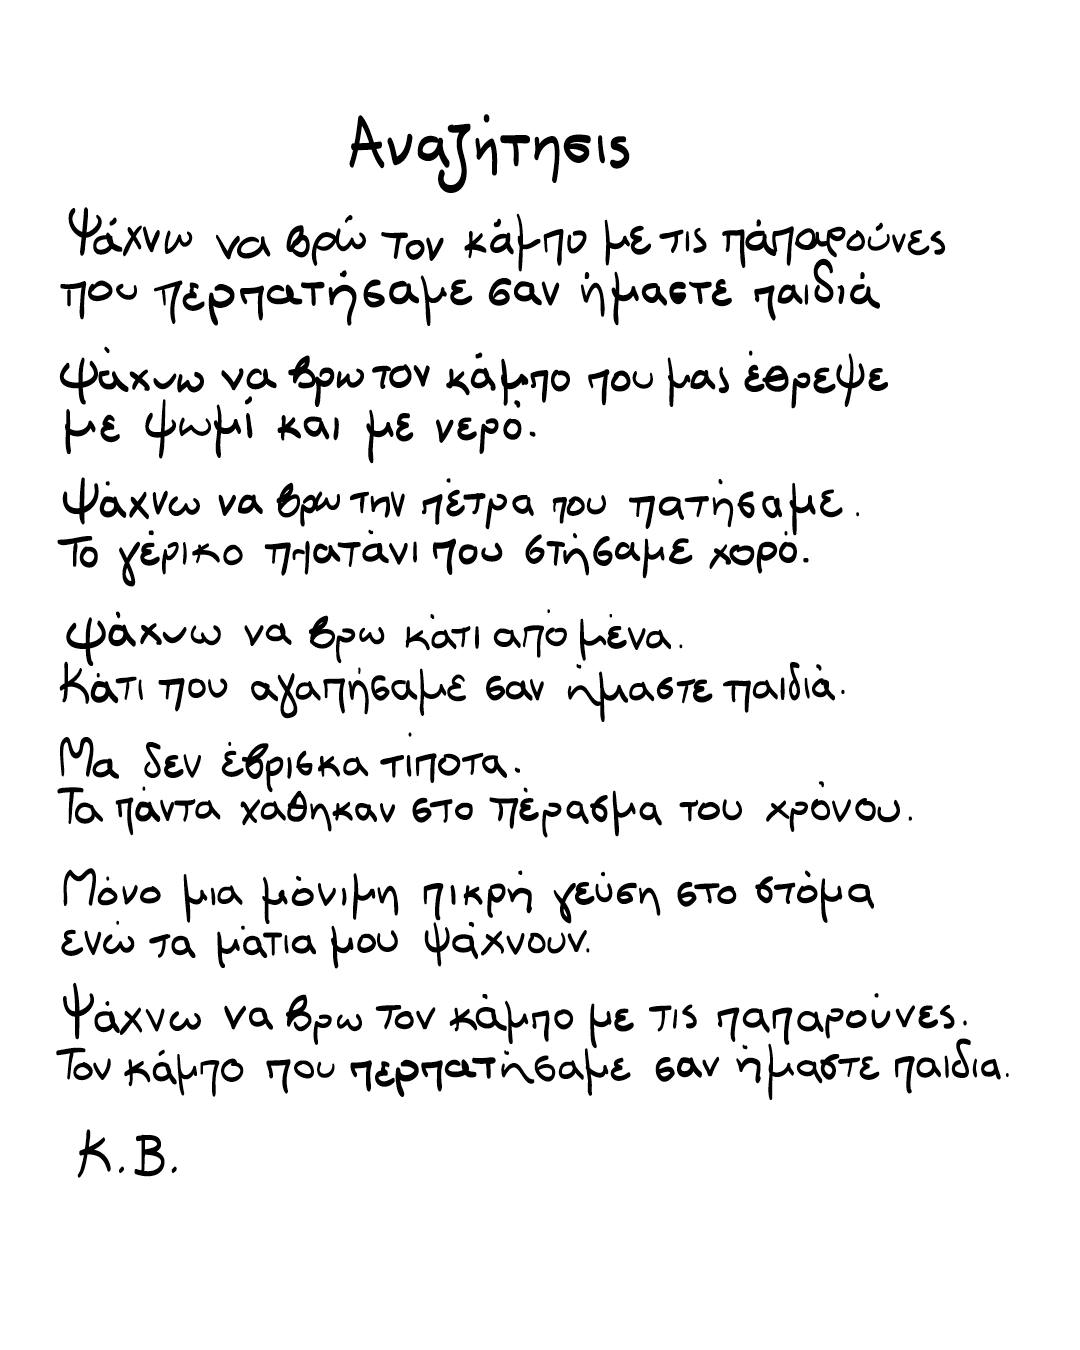 Αναζήτησις
Ψάχνω να βρώ τον κάμπο με τις πάπαρούνες
που περπατήσαμε σαν ήμαστε παιδιά
Ψάχνω να βρω τον κάμπο που μας έθρεψε
με ψωμί και με νερό.
Ψάχνω να βρω την πέτρα που πατήσαμε.
Το γέρικο πλατάνι που στήσαμε χορό.
Ψάχνω να βρω κάτι από μένα.
Κάτι που αγαπήσαμε σαν ήμαστε παιδιά.
Μα δεν έβρισκα τίποτα.
Τα πάντα χαθηκαν στο πέρασμα του χρόνου.
Μόνο μια μόνιμη πικρή γεύση στο στόμα
ενώ τα μάτια μου ψάχνουν.
Ψάχνω να βρω τον κάμπο με τις παπαρούνες.
Τον κάμπο που περπατήσαμε σαν ήμαστε παιδια.
Κ.Β.